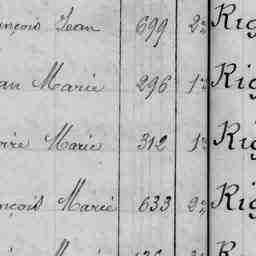 ançois Jean 699 2 Rig
an Marie 296 1 Rig
oire Marie 312 1 Rig
nçois Marie 633 2 Rig